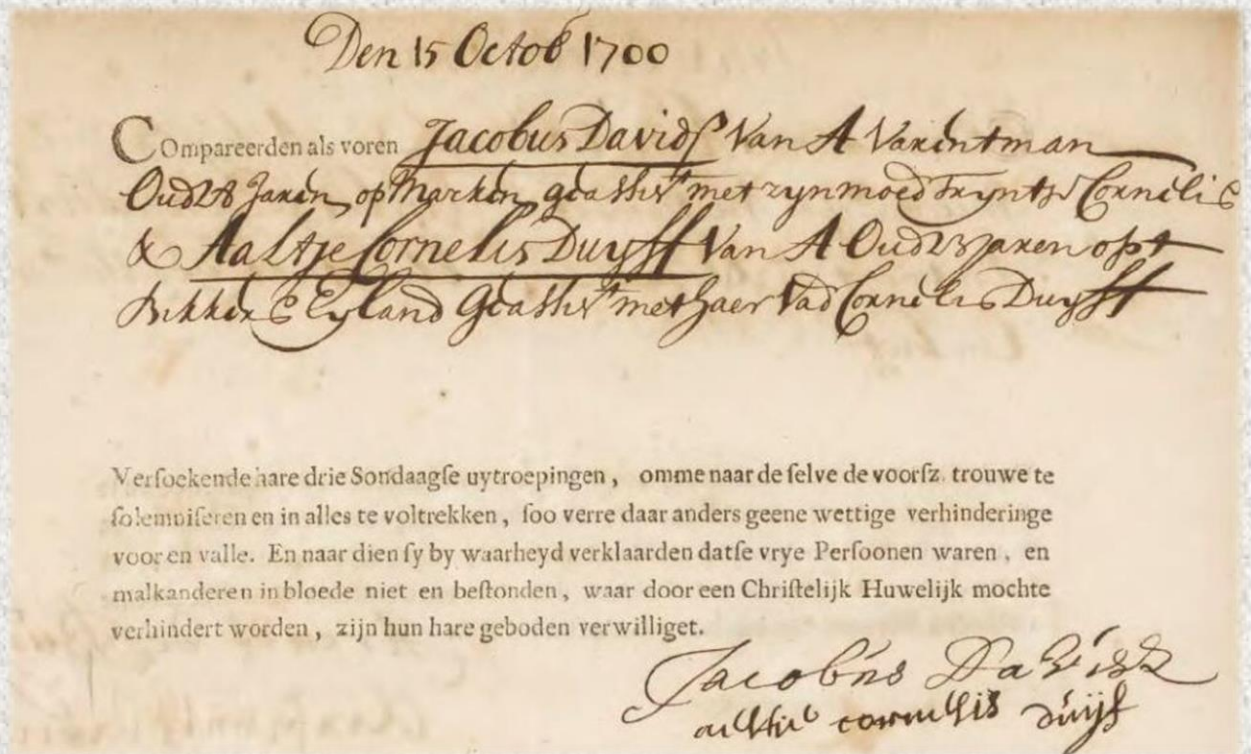 Den 15 Octob 1700
Compareerden als voren Jacobus Davids Van A Varentman
Oud 28 Jaren op Marken geassist met zyn moed Tryntie Cornelis
& Aaltje Cornelis Duyff Van A Oud 23 jaren opt
Bikkers Eyland Geassist met haer Vad Cornelis Duyff
Versoekende hare drie Sondaagse uytroepingen, omme naar de selve de voorsz. trouwe te
solemniseren en in alles te voltrekken, soo verre daar anders geene wettige verhinderinge
voor en valle. En naar dien sy by waarheyd verklaarden datse vrye Persoonen waren, en
malkanderen in bloede niet en bestonden, waar door een Christelijk Huwelijk mochte
verhindert worden, zijn hun hare geboden verwilliget.
Jacobus Davids
aeltie cornelis duijf